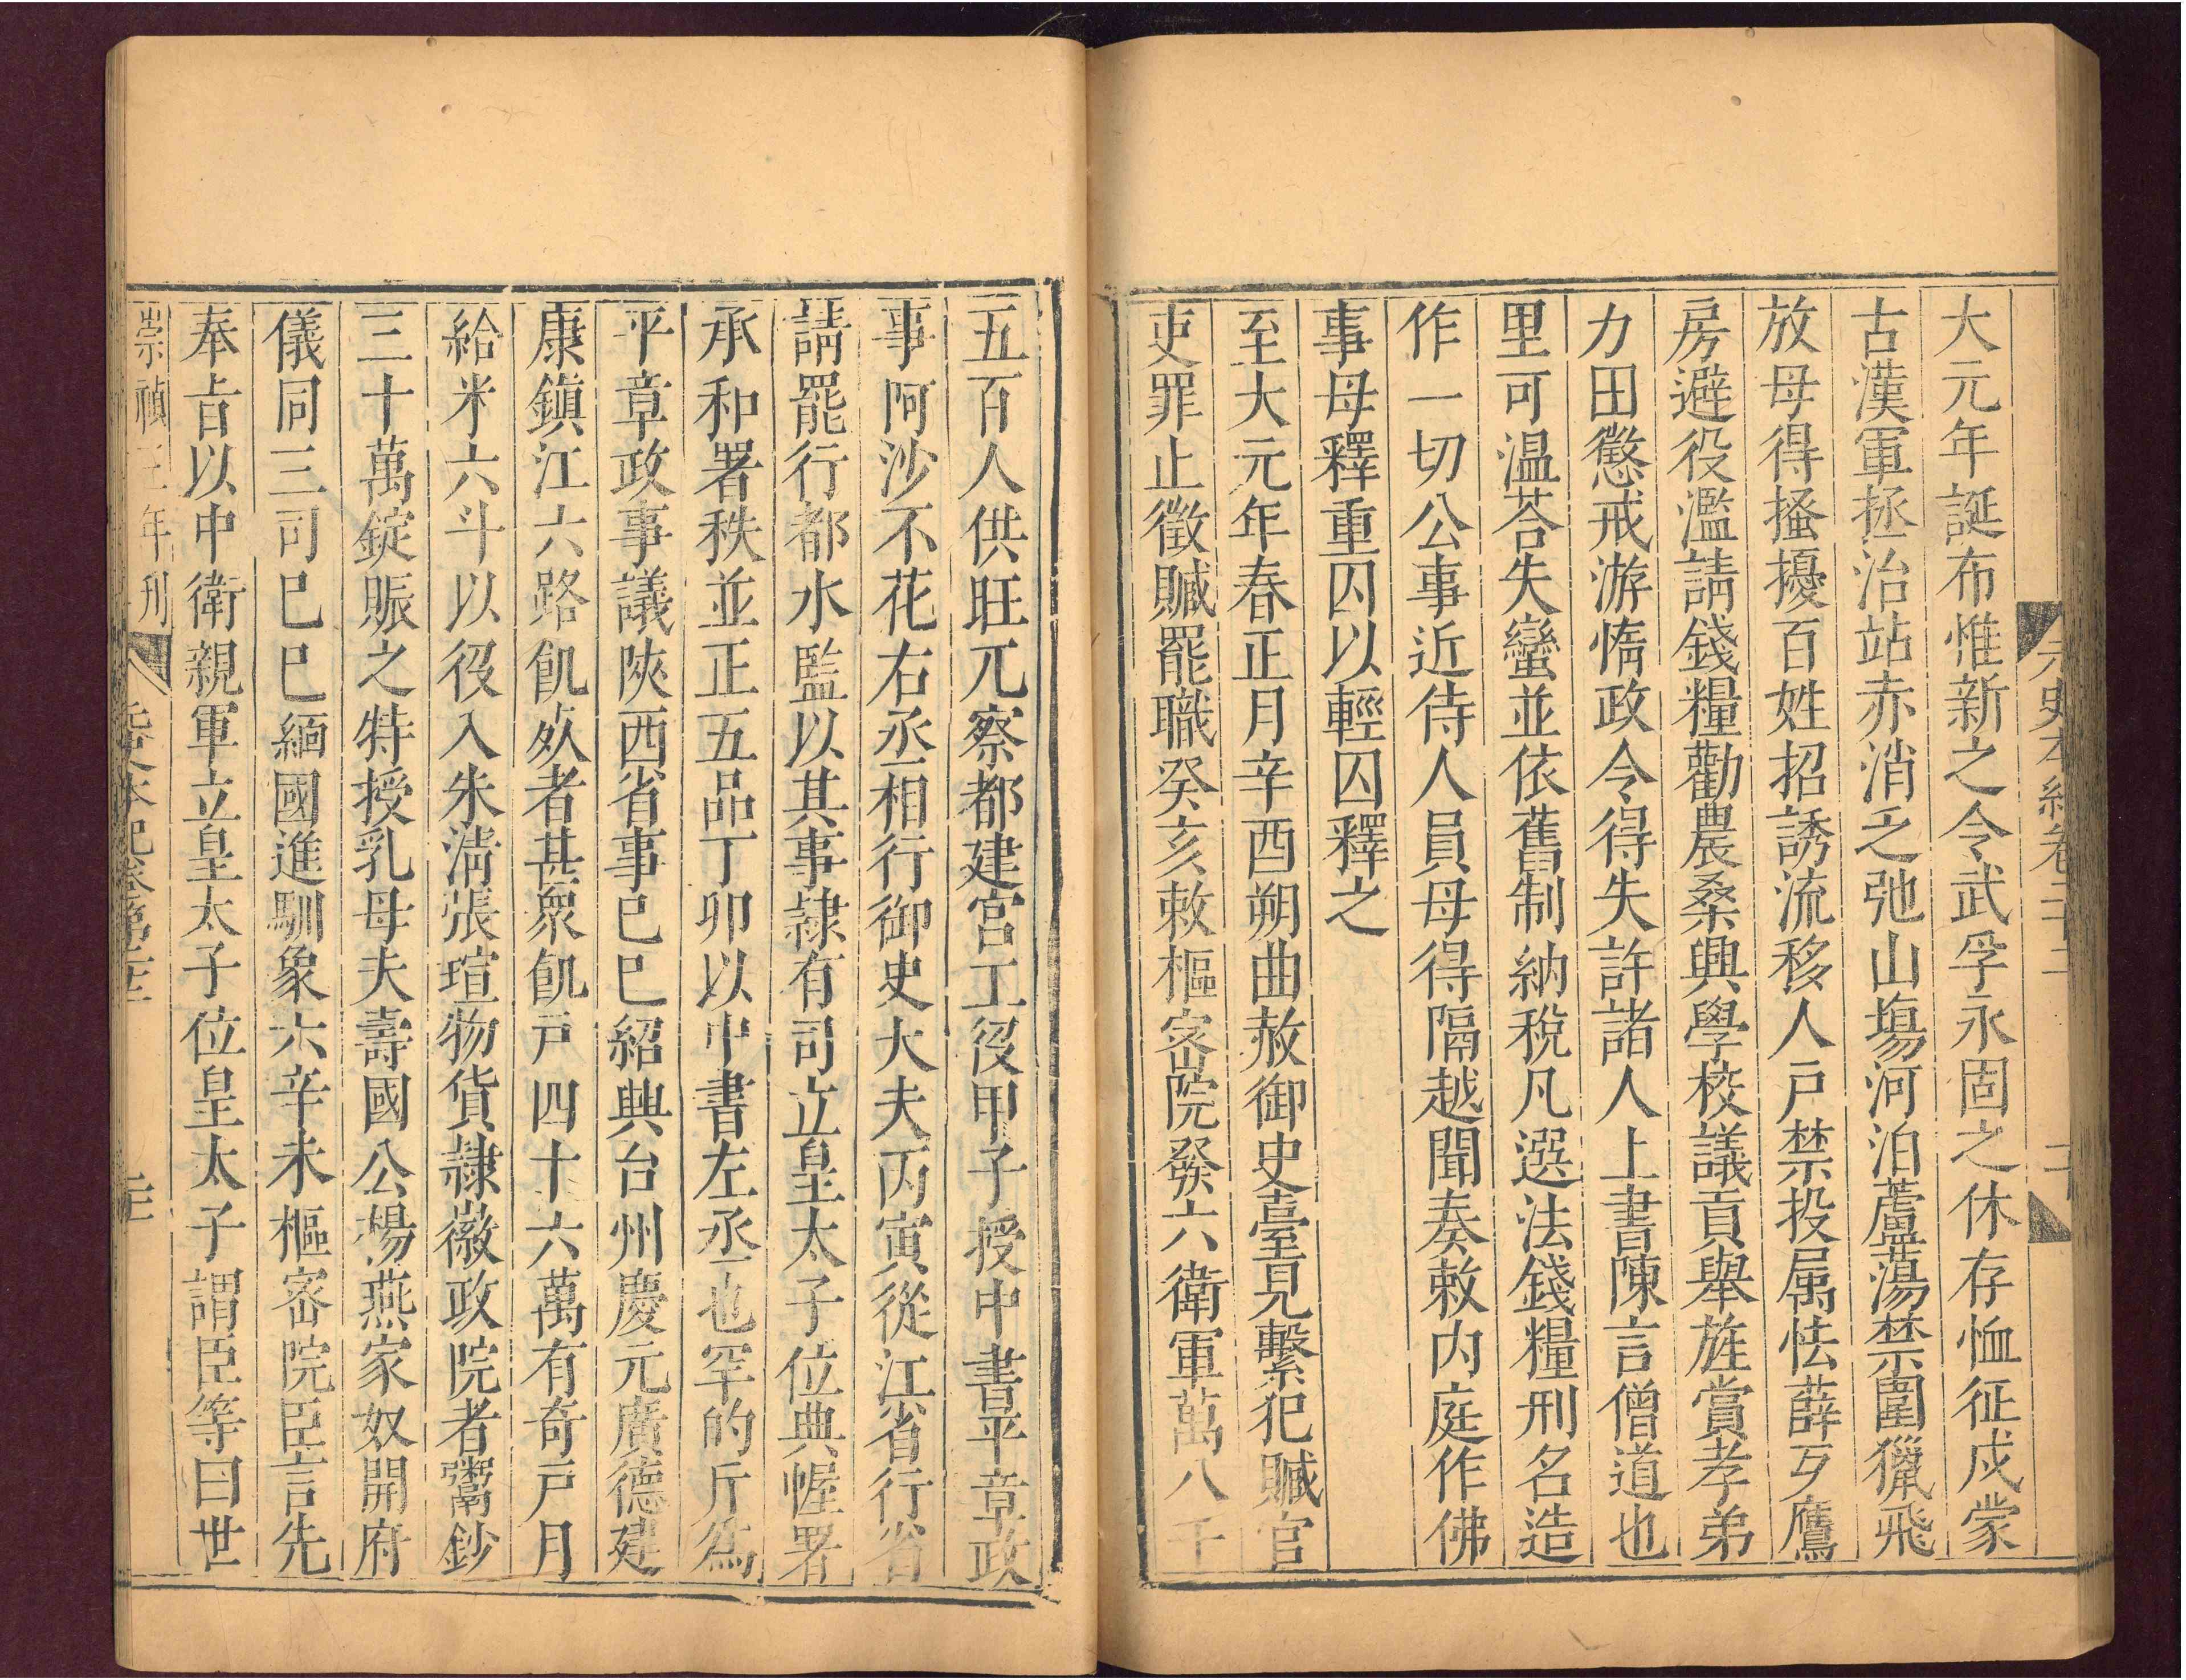 元史本紀卷二十二
二十
大元年誕布惟新之令武孚永固之休存恤征戍蒙
古漢軍拯治站赤消乏弛山塲河泊蘆蕩禁圍獵飛
放毋得搔擾百姓招誘流移人戸禁投属怯薛歹鷹
房避役濫請錢糧勸農桑興學校議貢舉旌賞孝弟
力田懲戒游惰政令得失許諸人上書陳言僧道也
里可温荅失蠻並依舊制納稅凡選法錢糧刑名造
作一切公事近侍人員毋得隔越聞奏敕内庭作佛
事毋釋重囚以輕囚釋之
至大元年春正月辛酉朔曲赦御史臺見繫犯贓官
吏罪止徵贓罷職癸亥敕樞密院發六衛軍萬八千
五百人供旺兀察都建宫工役甲子授中書平章政
事阿沙不花右丞相行御史大夫丙寅從江省行省
請罷行都水監以其事隷有司立皇太子位典幄署
承和署秩並正五品丁卯以中書左丞也罕的斤為
平章政事議陝西省事己巳紹興台州慶元廣德建
康鎮江六路飢死者甚衆飢戸四十六萬有奇戸月
給米六斗以役入朱淸張瑄物貨隷徽政院者鬻鈔
三十萬錠賑之特授乳母夫壽國公楊燕家奴開府
儀同三司己巳緬國進馴象六辛未樞密院臣言先
奉㫖以中衛親軍立皇太子位皇太子謂臣等曰世
崇禎三年刊
元史本紀卷第二十二
二十一